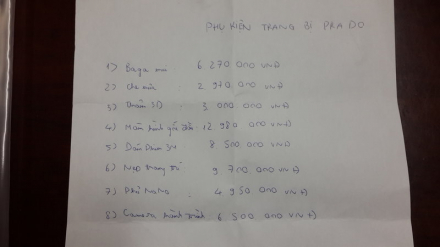 PHỤ KIỆN TRANG BỊ PRADO
1) Baga mui 6 270 000 VNĐ
2) 2 970 000 VNĐ
3) Thảm 3D 3 000 000 VNĐ
4) Màn hình gối đầu 12 980 000 VNĐ
5) Dán phim 3M 8 500 000 VNĐ
6) Nẹp trang trí 9 700 000 VNĐ
7) Phủ Nano 4 950 000 VNĐ
8) Camera hành trình 6 500 000 VNĐ